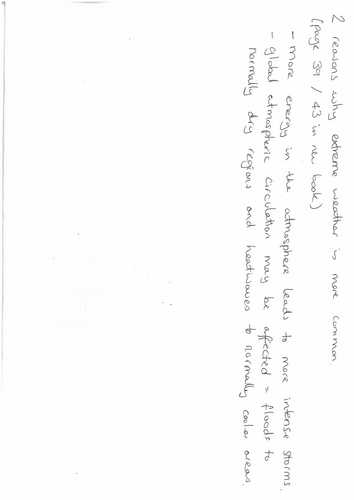 2 reasons why extreme weather is more common.
(page 39 / 43 in new book)
- more energy in the atmosphere leads to more intense storms.
- global atmospheric circulation may be affected = floods to
normally dry regions and heatwaves to normally cooler areas.